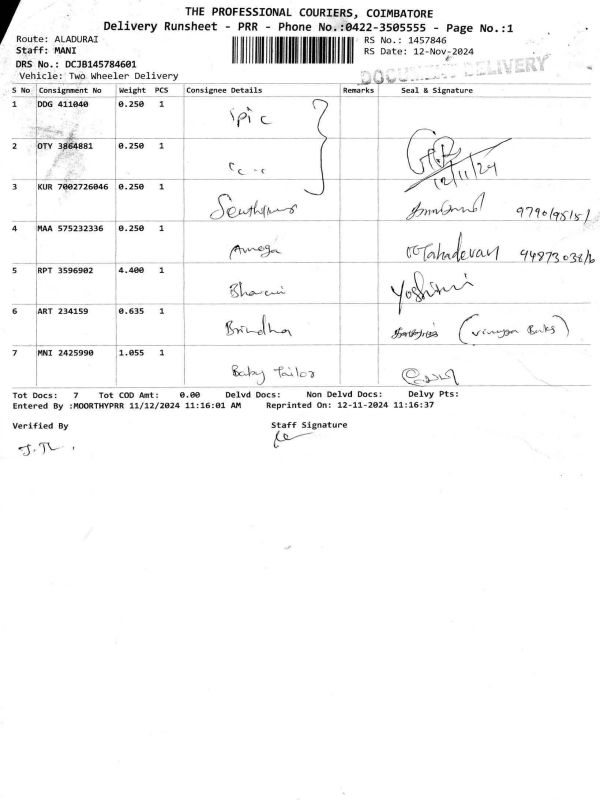 THE PROFESSIONAL COURIERS, COIMBATORE
Delivery Runsheet - PRR - Phone No.:0422-3505555 - Page No.:1
Route: ALADURAI
RS No.: 1457846
Staff: MANI
RS Date: 12-Nov-2024
DRS No.: DCJB145784601
Vehicle: Two Wheeler Delivery
DOCUMENT DELIVERY
S No Consignment No Weight PCS Consignee Details Remarks Seal & Signature
1 DDG 411040 0.250 1 ipic
2 OTY 3864881 0.250 1
12/11/24
3 KUR 7002726046 0.250 1
4 MAA 575232336 0.250 1 Amega
5 RPT 3596902 4.400 1 Yoshini
6 ART 234159 0.635 1 Brindha
7 MNI 2425990 1.055 1 Baby Tailor
Tot Docs: 7 Tot COD Amt: 0.00 Delvd Docs: Non Delvd Docs: Delvy Pts:
Entered By :MOORTHYPRR 11/12/2024 11:16:01 AM Reprinted On: 12-11-2024 11:16:37
Verified By Staff Signature